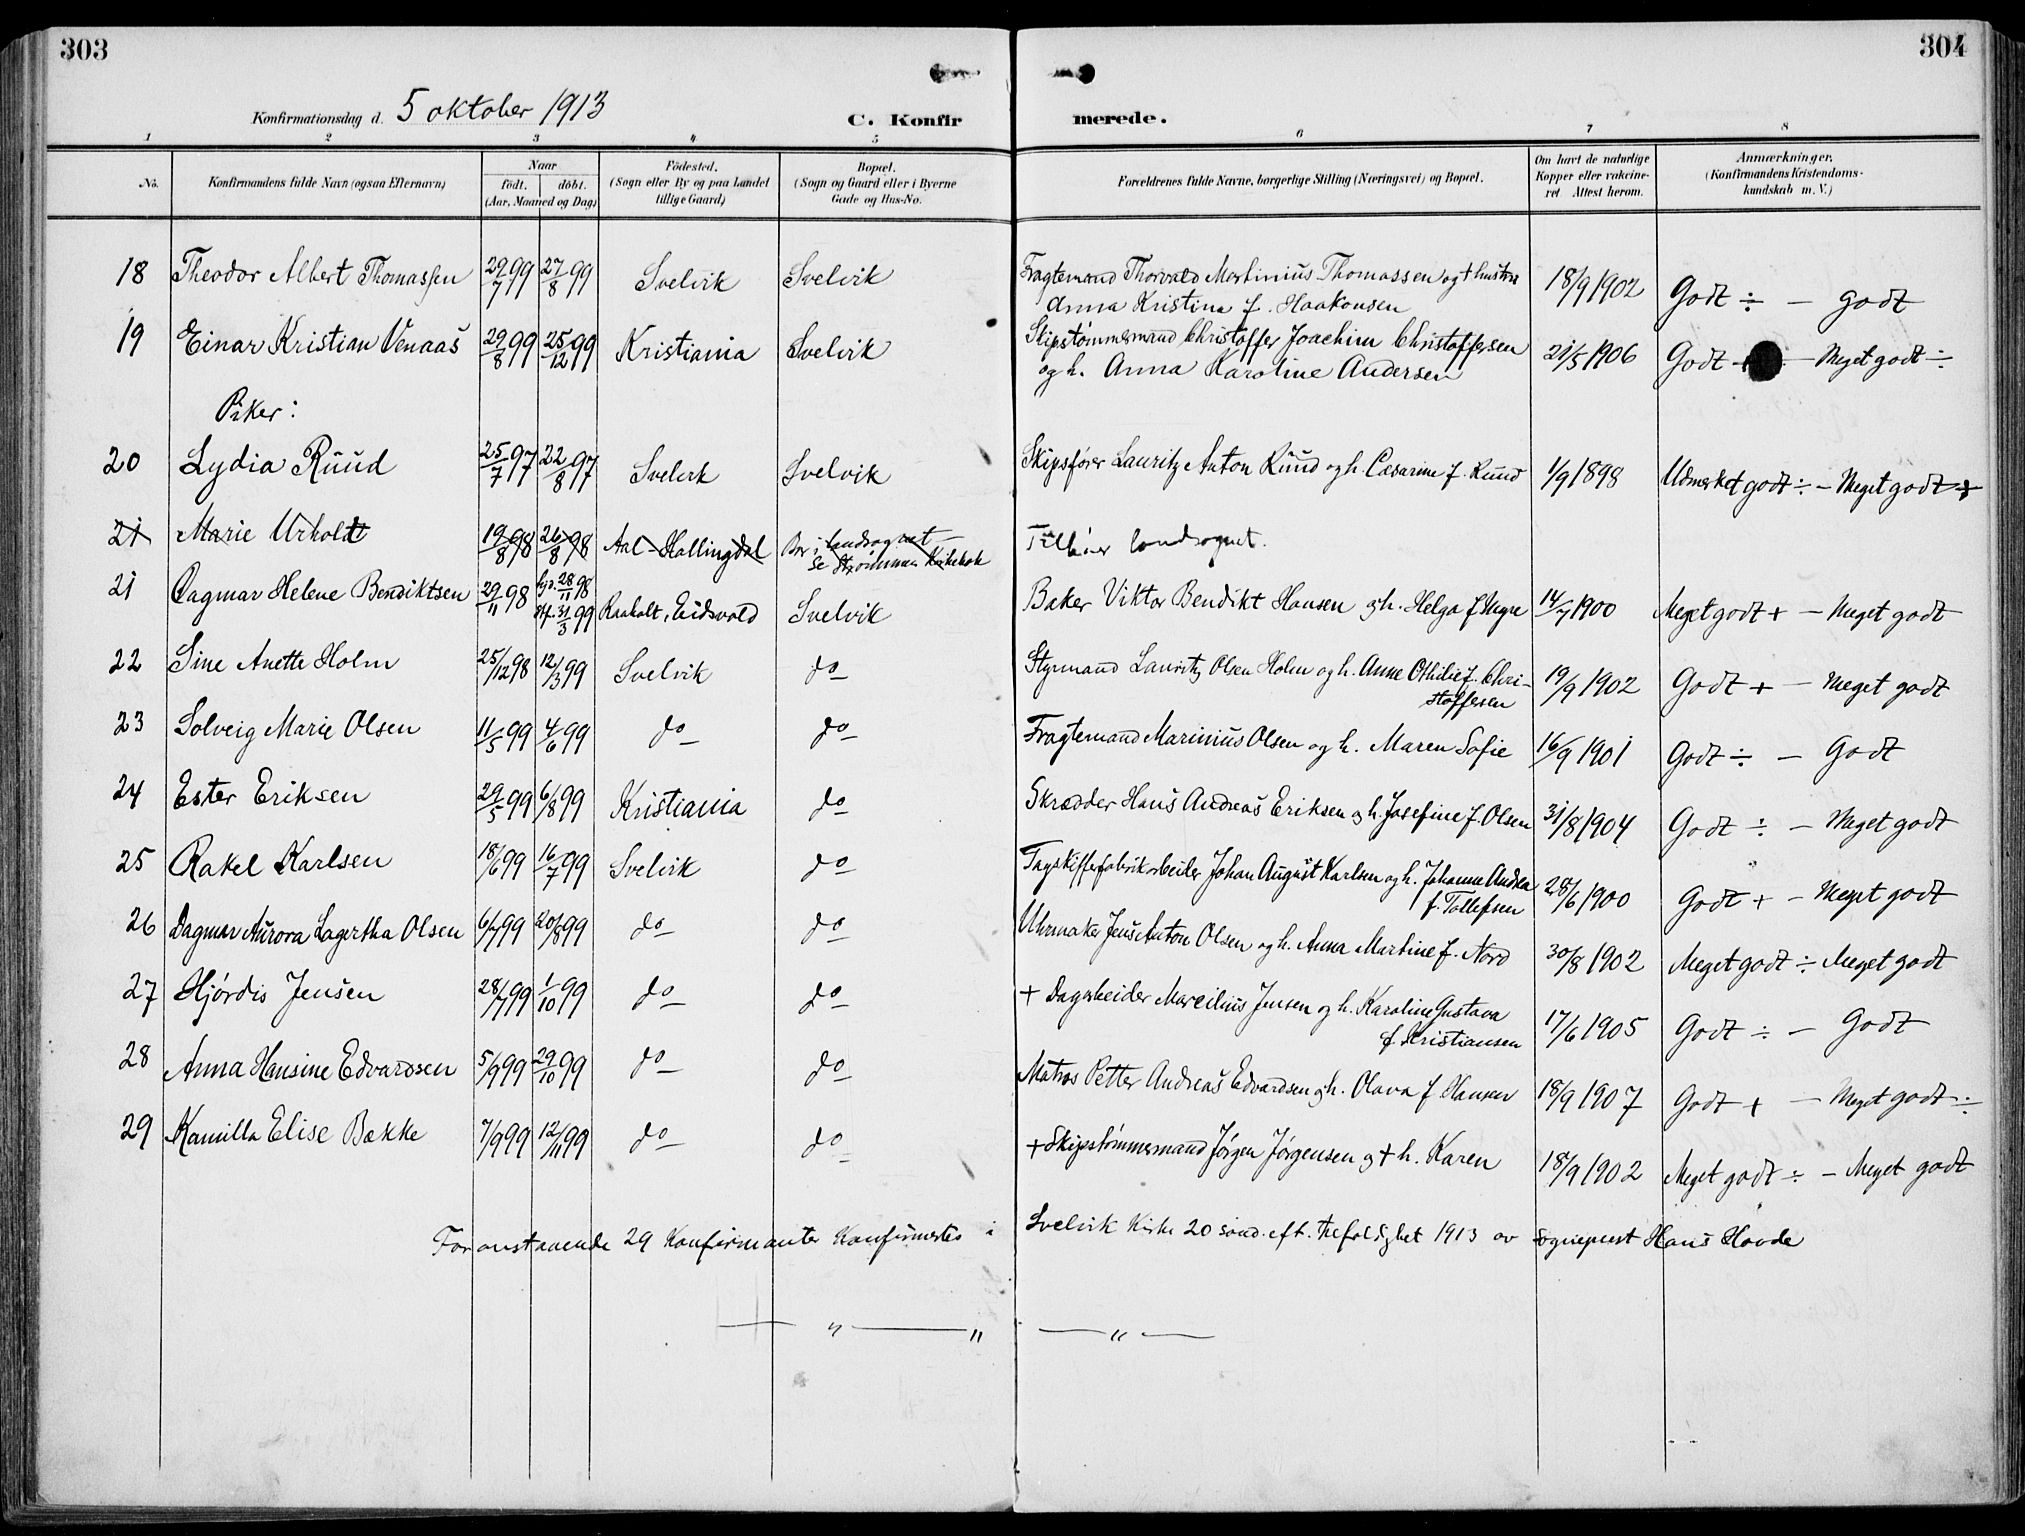 303
304
Konfirmationsdag d. 5 oktober 1913
C. Konfirmerede.
1 2 3 4 5 6 7 8
No.
Konfirmandens fulde Navn (ogsaa Efternavn)
Naar
födt. döbt.
(Aar, Maaned og Dag)
Födested.
(Sogn eller By og paa Landet
tillige Gaard)
Bopæl.
(Sogn og Gaard eller i Byerne
Gade og Hus-No.
Forældrenes fulde Navne, borgerlige Stilling (Næringsvei) og Bopæl.
Om havt de naturlige
Kopper eller vakcine-
ret Attest herom.
Anmærkninger.
(Konfirmandens Kristendoms-
kundskab m. V.)
18 Theodor Albert Thomassen 29/7 99 27/8 99 Svelvik Svelvik Fragtemand Thorvald Martinius Thomassen og † hustru 18/9 1902 Godt ÷ — godt
Anna Kristine f. Haakonsen
19 Einar Kristian Venaas 29/8 99 25/12 99 Kristiania Svelvik Skipstømmermand Christoffer Joachim Christoffersen 21/5 1906 Godt — Meget godt ÷
og h. Anna Karoline Andersen
Piker:
20 Lydia Ruud 25/7 97 22/8 97 Svelvik Svelvik Skipsfører Lauritz Anton Ruud og h. Cæsarine f. Ruud 1/9 1898 Udmerket godt ÷ — Meget godt +
21 Marie Urholdt 19/8 98 26/8 98 Aal - Hallingdal Bor i landsognet — Tilhører landsognet.
Se Strømmen Kirkebok
21 Dagmar Helene Bendiktsen 29/11 98 hjd. 28/11 98 Raaholt, Eidsvold Svelvik Baker Viktor Bendikt Hansen og h. Helga f. Myre 14/7 1900 Meget godt + — Meget godt
stf. 31/3 99
22 Sine Anette Holm 25/12 98 12/3 99 Svelvik do Styrmand Lauritz Olsen Holm og h. Anne Othilie f. Chri- 19/9 1902 Godt + — Meget godt
stoffersen
23 Solveig Marie Olsen 11/5 99 4/6 99 do do Fragtemand Marinius Olsen og h. Maren Sofie 16/9 1901 Godt ÷ — Godt
24 Ester Eriksen 29/5 99 6/8 99 Kristiania do Skrædder Hans Andreas Eriksen og h. Josefine f. Olsen 31/8 1904 Godt ÷ — Meget godt
25 Rakel Karlsen 18/6 99 16/7 99 Svelvik do Tagskifferfabrikarbeider Johan August Karlsen og h. Johanne Andrea 28/6 1900 Godt + — Meget godt
f. Tollefsen
26 Dagmar Aurora Lagertha Olsen 6/7 99 20/8 99 do do Uhrmaker Jens Anton Olsen og h. Anna Martine f. Nord 30/8 1902 Meget godt ÷ Meget godt
27 Hjørdis Jensen 28/7 99 1/10 99 do do † Dagarbeider Marcilius Jensen og h. Karoline Gustava 17/6 1905 Godt ÷ — Godt
f. Kristiansen
28 Anna Hansine Edvardsen 5/9 99 29/10 99 do do Matros Petter Andreas Edvardsen og h. Olava f Hansen 18/9 1907 Godt + — Meget godt ÷
29 Kamilla Elise Bække 7/9 99 12/11 99 do do † Skipstømmermand Jørgen Jørgensen og † h. Karen 18/9 1902 Meget godt ÷ — Meget godt
Foranstaaende 29 Konfirmanter Konfirmertes i Svelvik Kirke 20 sønd. eft. trefoldighet 1913 av sogneprest Hans Hovde
— " — " — " —